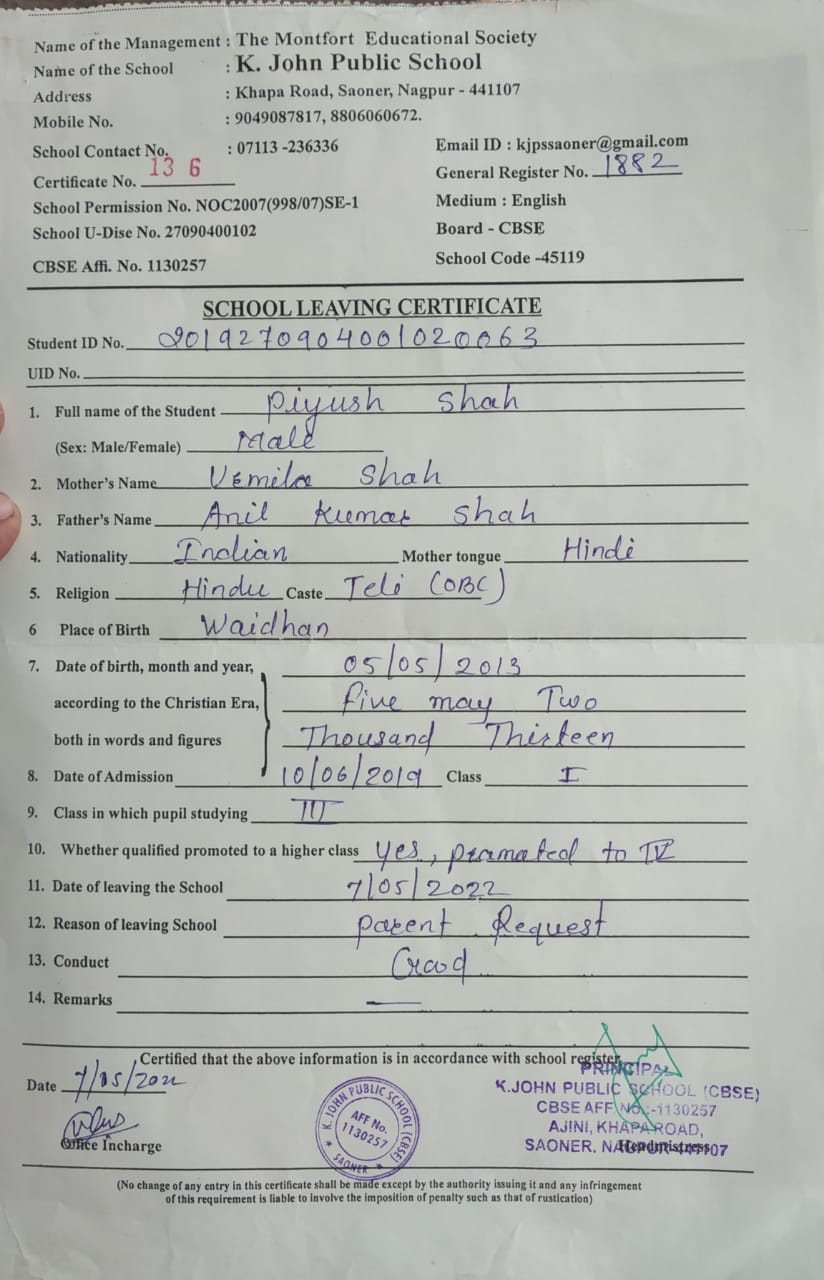 Name of the Management : The Montfort Educational Society
Name of the School : K. John Public School
Address : Khapa Road, Saoner, Nagpur - 441107
Mobile No. : 9049087817, 8806060672.
School Contact No. : 07113 -236336 Email ID : kjpssaoner@gmail.com
Certificate No. 13 6 General Register No. 1882
School Permission No. NOC2007(998/07)SE-1 Medium : English
School U-Dise No. 27090400102 Board - CBSE
CBSE Affi. No. 1130257 School Code -45119
SCHOOL LEAVING CERTIFICATE
Student ID No. 2019270904001020063
UID No.
1. Full name of the Student Piyush Shah
(Sex: Male/Female) Male
2. Mother's Name Shah
3. Father's Name Anil Kumar Shah
4. Nationality Indian Mother tongue Hindi
5. Religion Hindu Caste Teli (OBC)
6 Place of Birth Waidhan
7. Date of birth, month and year, 05/05/2013
according to the Christian Era, five may Two
both in words and figures Thousand Thirteen
8. Date of Admission 10/06/2019 Class I
9. Class in which pupil studying III
10. Whether qualified promoted to a higher class Yes, promoted to IV
11. Date of leaving the School 7/05/2022
12. Reason of leaving School Parent Request
13. Conduct Good
14. Remarks —
Certified that the above information is in accordance with school register.
Date 7/05/2022
Office Incharge
K. JOHN PUBLIC SCHOOL (CBSE)
AFF No.
1130257
SAONER
PRINCIPAL
K.JOHN PUBLIC SCHOOL (CBSE)
CBSE AFF No.:-1130257
AJINI, KHAPA ROAD,
SAONER. NAGPUR-441107
Headmistress
(No change of any entry in this certificate shall be made except by the authority issuing it and any infringement
of this requirement is liable to involve the imposition of penalty such as that of rustication)